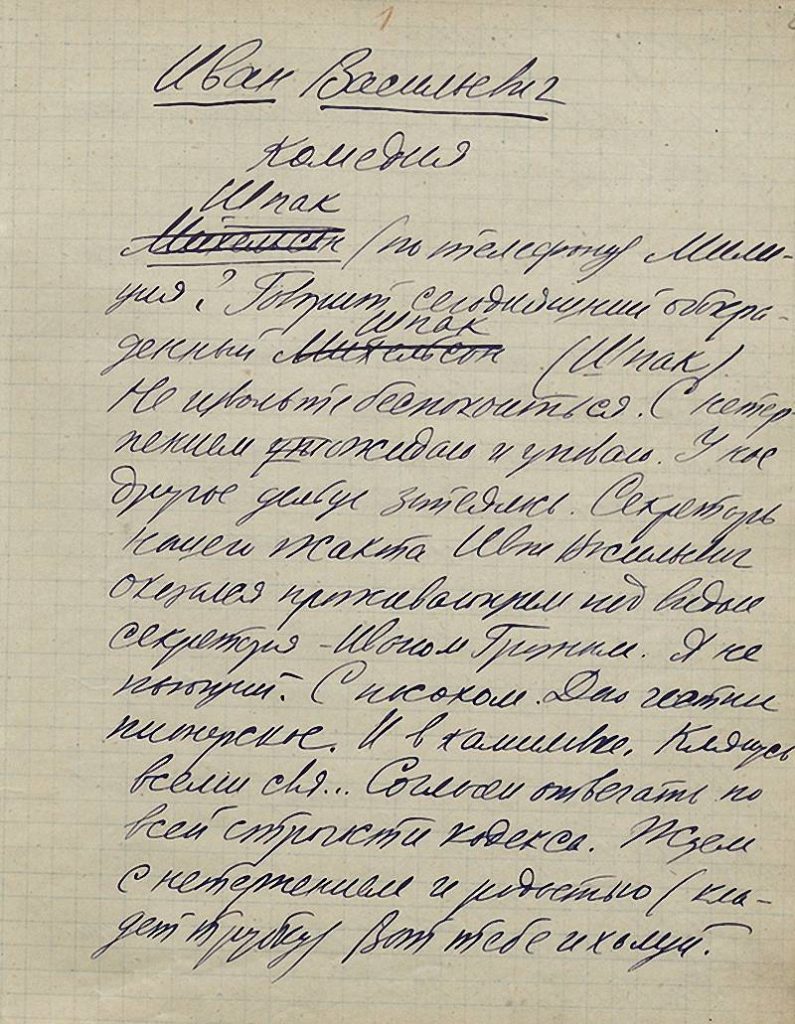 1
Иван Васильевич
Комедия
Шпак
Михельсон (по телефону) Мили-
ция? Говорит сегодняшний обкра-
Шпак
денный Михельсон (Шпак).
Не извольте беспокоиться. С нетер-
пением ожидаю и уповаю. У нас
другое дельце затеялось. Секретарь
нашего жакта Иван Васильевич
оказался проживающим под видом
секретаря - Иваном Грозным. Я не
пьющий. С посохом. Даю честное
пионерское. И в камилавке. Клянусь
всеми свя... Согласен отвечать по
всей строгости кодекса. Ждем
с нетерпением и радостью (кла-
дет трубку) Вот тебе и холуй.